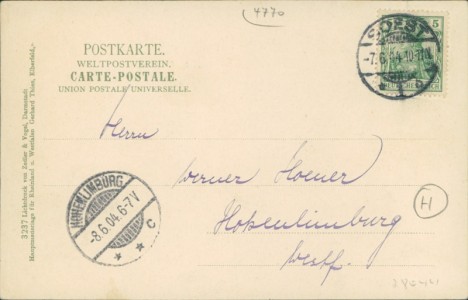 4770
POSTKARTE.
WELTPOSTVEREIN.
CARTE-POSTALE.
UNION POSTALE UNIVERSELLE.
SOEST
-7.6.04.10-11V.
5
DEUTSCHES REICH
Herrn
Werner Hoener
Hohenlimburg
Westf.
H
HOHENLIMBURG
-8.6.04.6-7V
* * C
3237 Lichtdruck von Zedler & Vogel, Darmstadt.
Hauptniederlage für Rheinland u. Westfalen Gerhard Thien, Elberfeld.